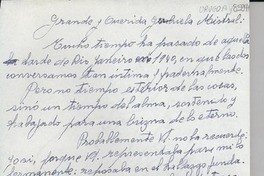 Grande y Querida Gabriela Mistral:
Mucho tiempo ha pasado de aquella
tarde de Rio Janeiro 1940, en que los dos
conversamos tan íntima y fraternalmente.
Pero no tiempo exterior de las cosas,
sino un tiempo del alma, sostenido y
trabajado para una brizna de lo eterno.
Probablemente Vd. no la recuerde.
Yo sí, porque Vd. representaba para mi lo
permanente: reposaba en el hallazgo